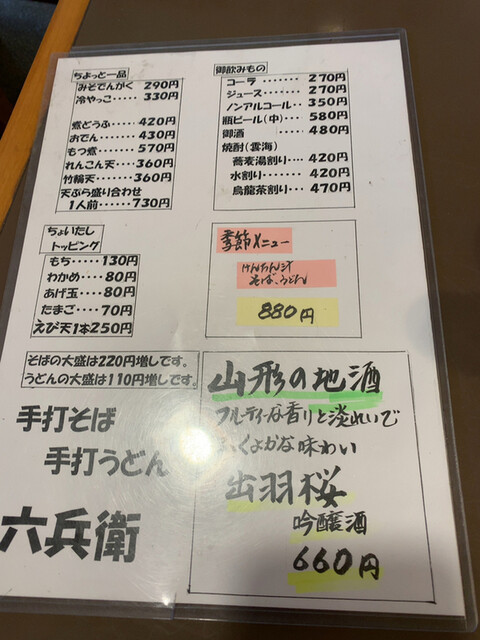 ちょっと一品
みそでんがく 290円
冷やっこ‥‥ 330円
煮どうふ‥‥ 420円
おでん‥‥‥ 430円
もつ煮‥‥‥ 570円
れんこん天‥ 360円
竹輪天‥‥‥ 360円
天ぷら盛り合わせ
1人前‥‥730円
御飲みもの
コーラ‥‥‥‥ 270円
ジュース‥‥‥ 270円
ノンアルコール‥ 350円
瓶ビール(中)‥ 580円
御酒‥‥‥‥‥ 480円
焼酎(雲海)
蕎麦湯割り‥ 420円
水割り‥‥‥ 420円
烏龍茶割り‥ 470円
ちょいたし
トッピング
もち‥‥‥130円
わかめ‥‥ 80円
あげ玉‥‥ 80円
たまご‥‥ 70円
えび天1本250円
季節メニュー
けんちん汁
そば、うどん
880円
そばの大盛は220円増しです。
うどんの大盛は110円増しです。
手打そば
手打うどん
六兵衛
山形の地酒
フルーティーな香りと淡れいで
ふくよかな味わい
出羽桜
吟醸酒
660円